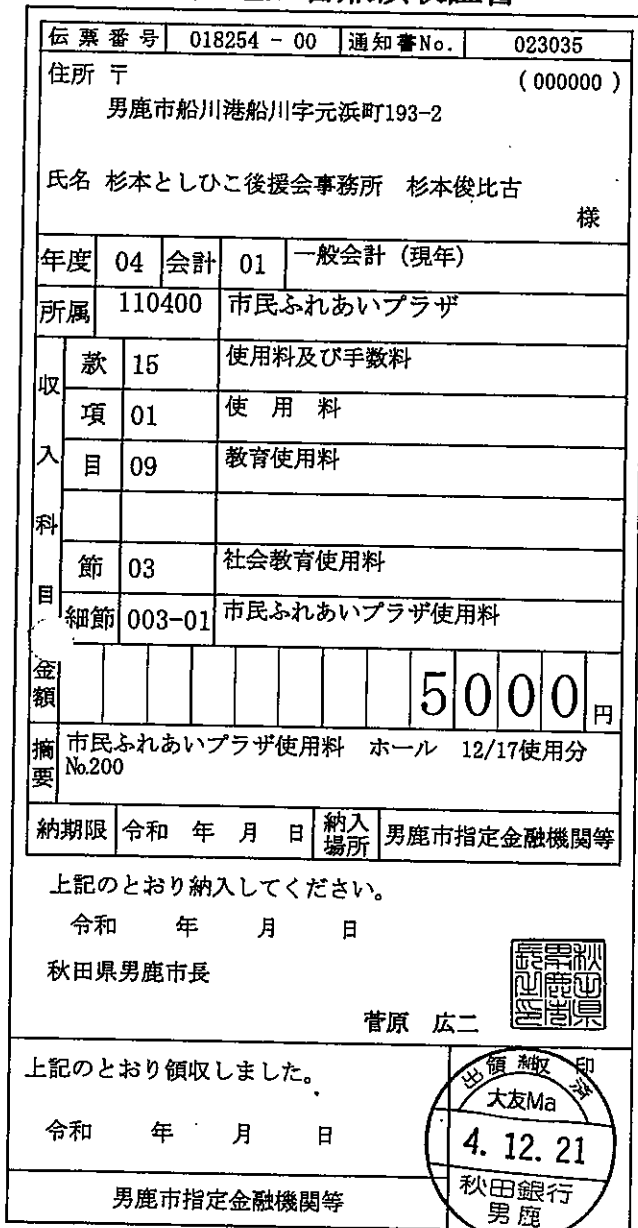 伝票番号 018254 - 00 通知書No. 023035
住所 〒 (000000 )
男鹿市船川港船川字元浜町193-2
氏名 杉本としひこ後援会事務所 杉本俊比古
様
年度 04 会計 01 一般会計 (現年)
所属 110400 市民ふれあいプラザ
収入科目
款 15 使用料及び手数料
項 01 使 用 料
目 09 教育使用料
節 03 社会教育使用料
細節 003-01 市民ふれあいプラザ使用料
金額 5000円
摘要 市民ふれあいプラザ使用料 ホール 12/17使用分
No.200
納期限 令和 年 月 日 納入場所 男鹿市指定金融機関等
上記のとおり納入してください。
令和 年 月 日
秋田県男鹿市長
菅原 広二
秋田県男鹿市長之印
上記のとおり領収しました。
令和 年 月 日
男鹿市指定金融機関等
大友Ma
4. 12. 21
秋田銀行
男鹿